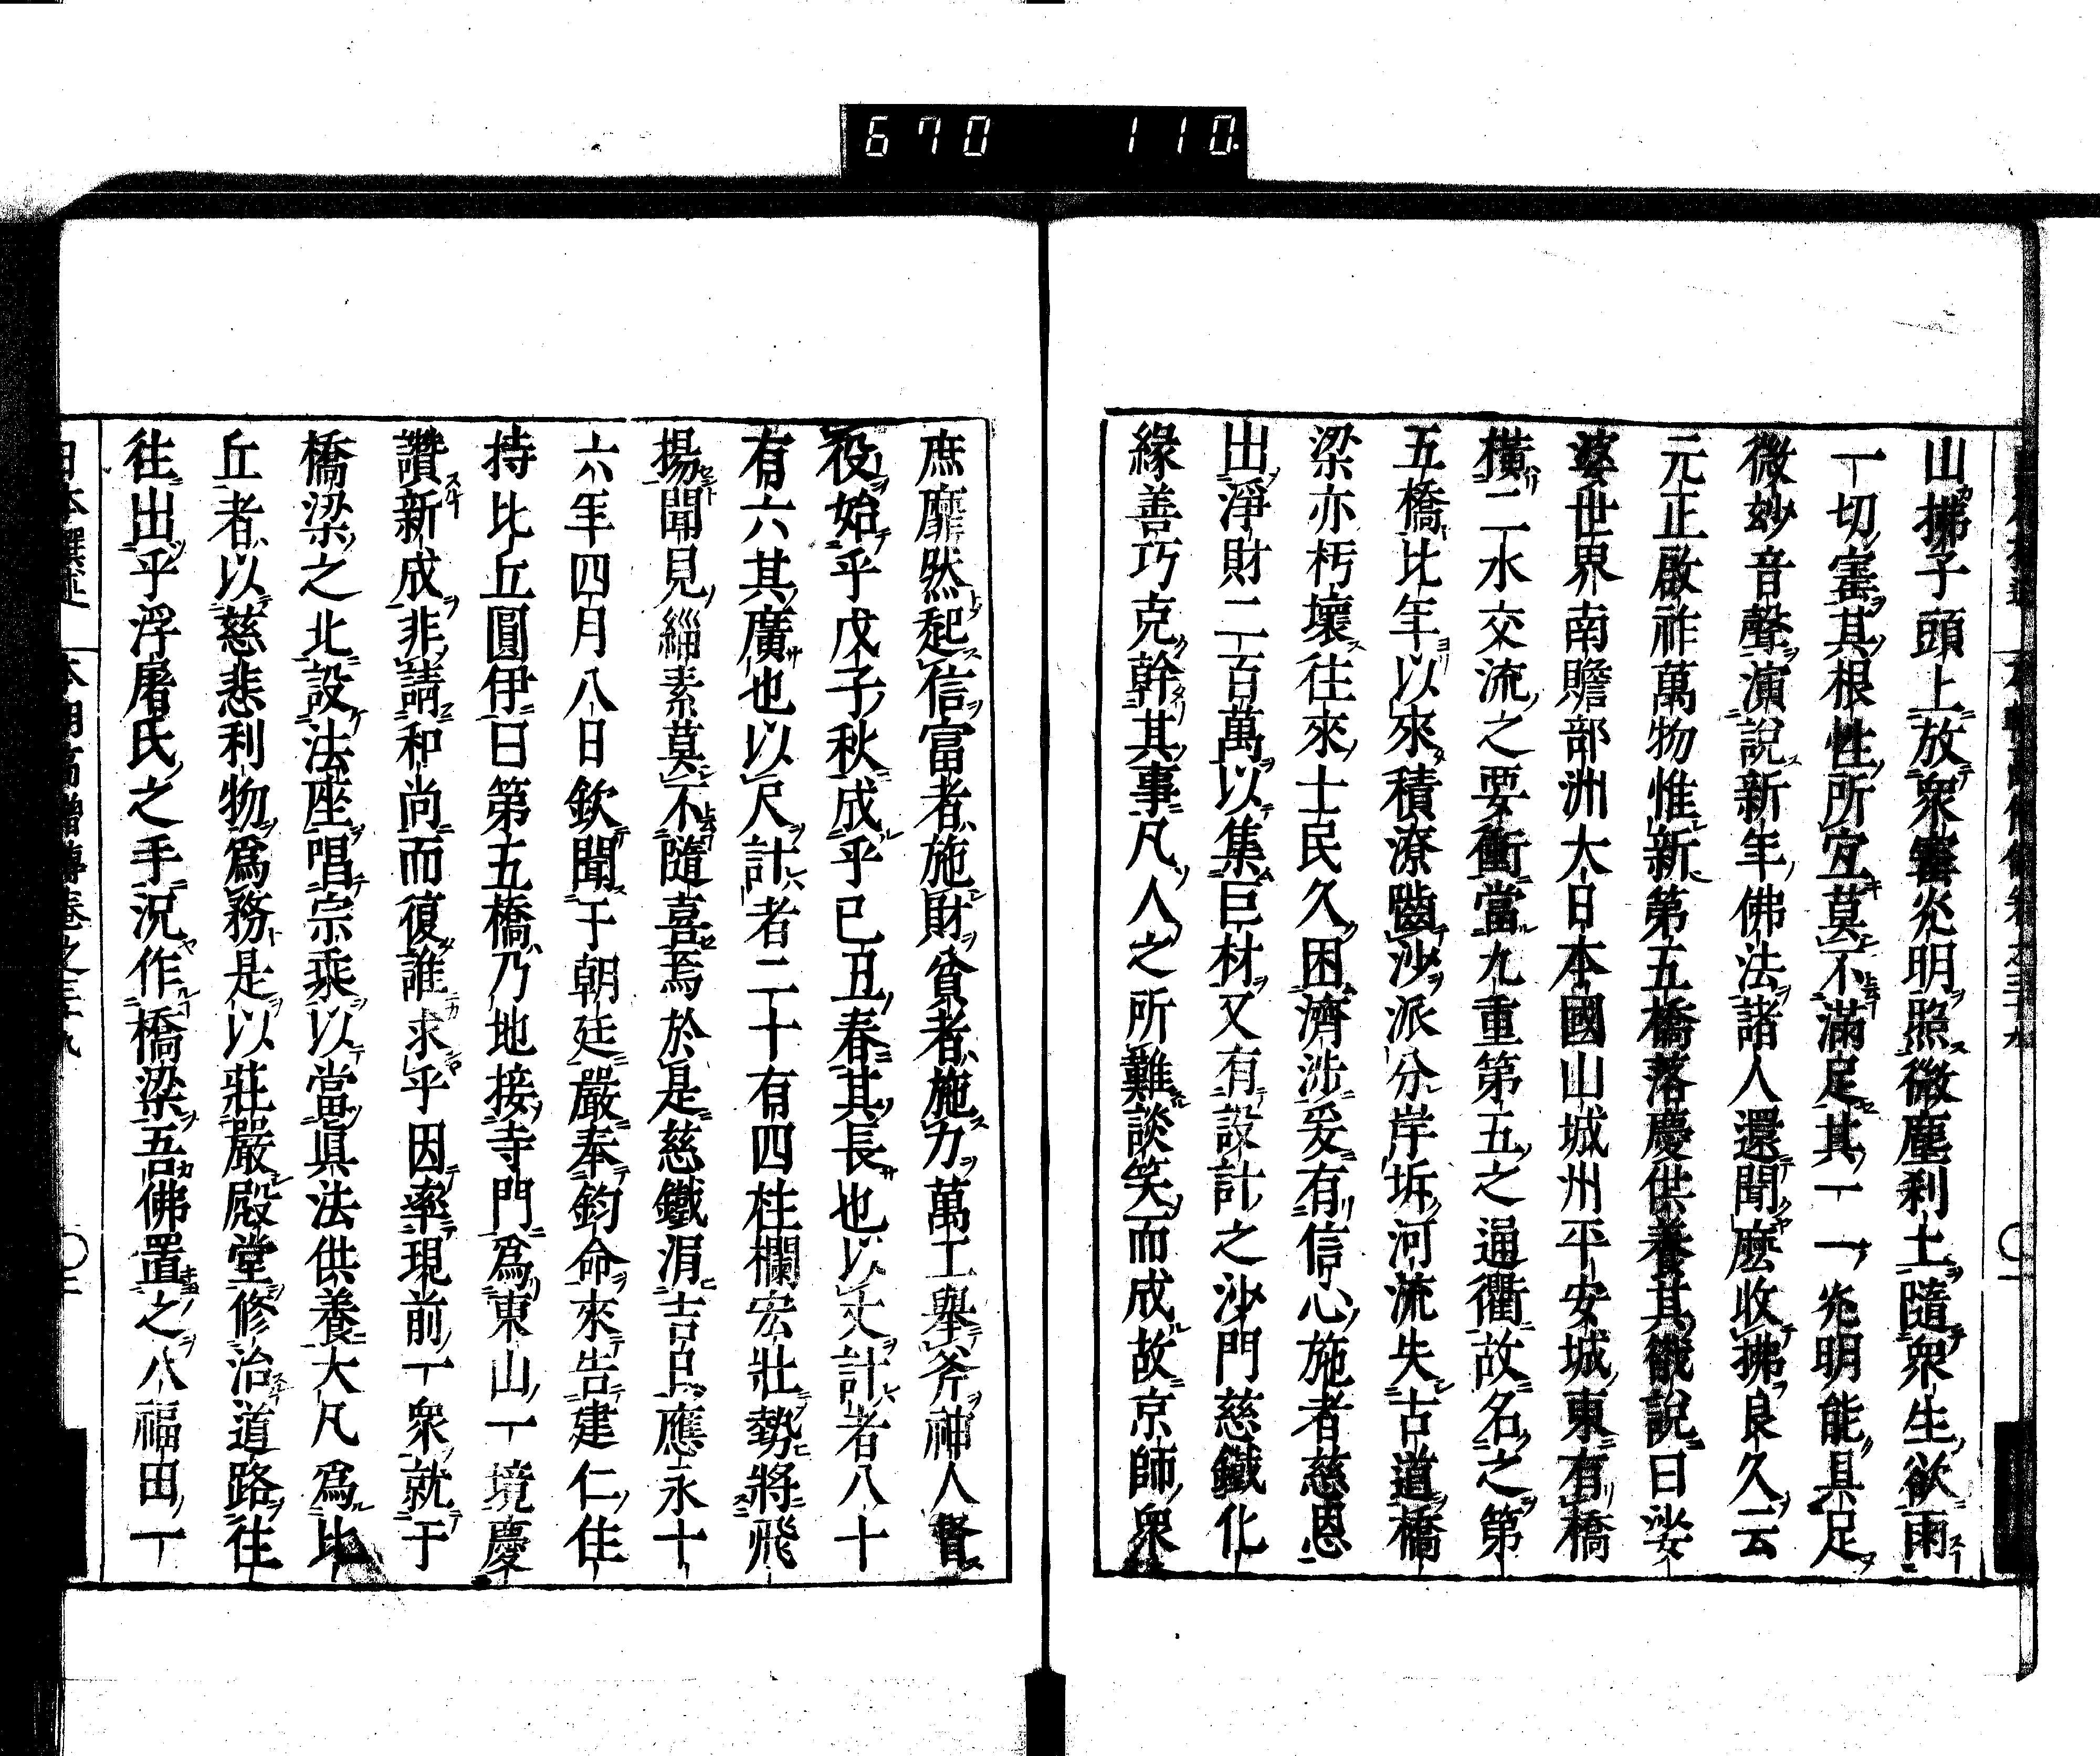 670 110.
山拂子頭上放衆寶光明照微塵刹土隨衆生欲雨
一切寶其根性所宜莫不滿足其一一光明能具足
微妙音聲演說新年佛法諸人還聞麽收拂良久云
元正啟祚萬物惟新第五橋落慶供養其儀說曰娑
婆世界南贍部洲大日本國山城州平安城東有橋
橫二水交流之要衝當九重第五之通衢故名之第
五橋比年以來積潦嚙沙派分岸坼河流失古道橋
梁亦朽壞往來士民久困濟涉爰有信心施者慈恩
出淨財二百萬以集巨材又有設計之沙門慈鐵化
緣善巧克幹其事凡人之所難談笑而成故京師衆
庶靡然起信富者施財貧者施力萬工擧斧神人督
役始乎戊子秋成乎己丑春其長也以丈計者八十
有六其廣也以尺計者二十有四柱欄宏壯勢將飛
揚聞見緇素莫不隨喜焉於是慈鐵涓吉旦應永十
六年四月八日欽聞于朝廷嚴奉鈞命來告建仁住
持比丘圓伊曰第五橋乃地接寺門爲東山一境慶
讚新成非請和尚而復誰求乎因率現前一衆就于
橋梁之北設法座唱宗乘以當眞法供養大凡爲比
丘者以慈悲利物爲務是以莊嚴殿堂修治道路往
往出乎浮屠氏之手況作橋梁吾佛置之八福田一
日本撰述 本朝高僧傳卷之三十九 〇二